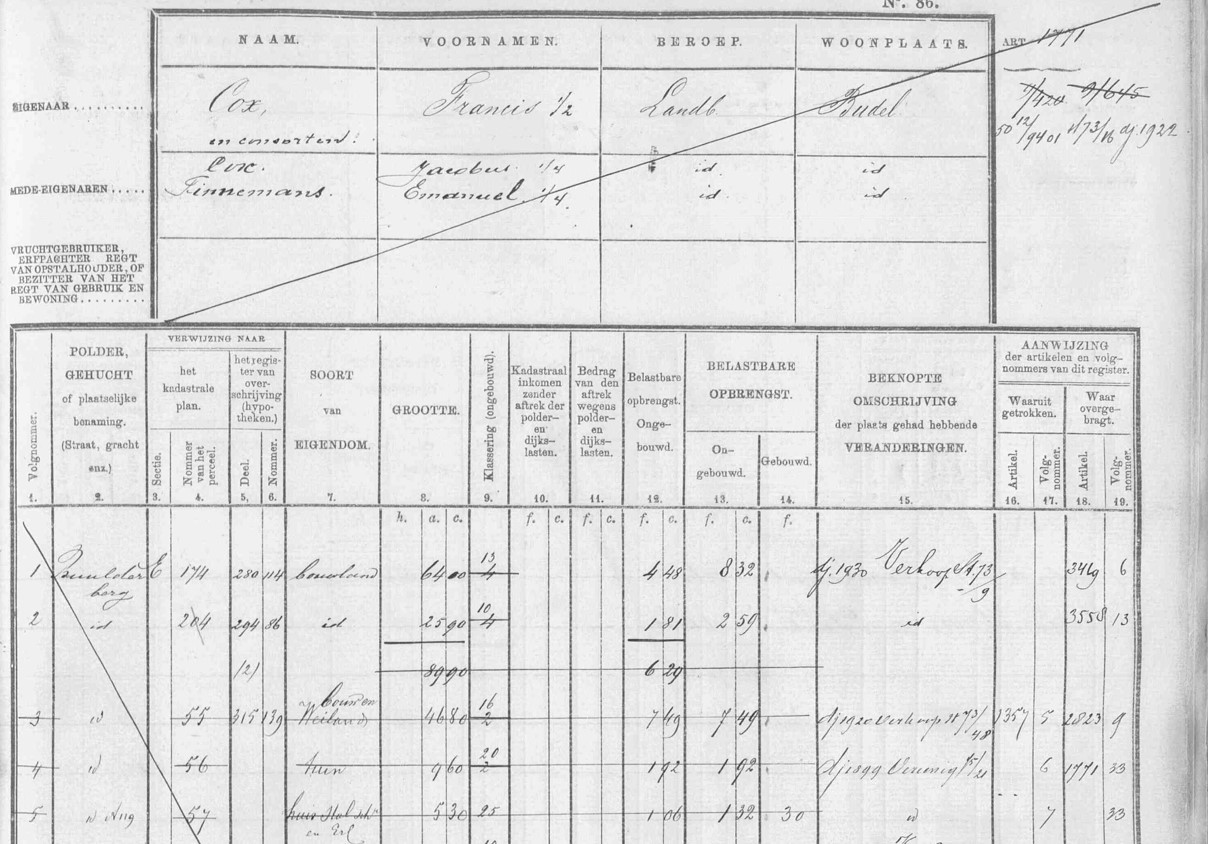 Nº. 86.
NAAM. VOORNAMEN. BEROEP. WOONPLAATS. ART. 1771
EIGENAAR Cox, Francis 1/2 Landb Budel 7/420 9/645
en consorten! 50 12/9401 st 73/16 dj. 1922
Cox. Jacobus 1/4 id. id
MEDE-EIGENAREN Tinnemans. Emanuel 1/4 id. id
VRUCHTGEBRUIKER,
ERFPACHTER REGT
VAN OPSTALHOUDER, OF
BEZITTER VAN HET
REGT VAN GEBRUIK EN
BEWONING
Volgnommer.
1.
POLDER,
GEHUCHT
of plaatselijke
benaming.
(Straat, gracht
enz.)
2.
VERWIJZING NAAR
het
kadastrale
plan.
Sectie.
3.
Nommer
van het
perceel.
4.
het regis-
ter van
over-
schrijving
(hypo-
theken.)
Deel.
5,
Nommer.
6.
SOORT
van
EIGENDOM.
7.
GROOTTE.
8.
Klassering (ongebouwd).
9.
Kadastraal
inkomen
zonder
aftrek der
polder-
en
dijks-
lasten.
10.
Bedrag
van den
aftrek
wegens
polder-
en
dijks-
lasten.
11.
Belastbare
opbrengst.
Onge-
bouwd.
12.
BELASTBARE
OPBRENGST.
On-
gebouwd.
13.
Gebouwd.
14.
BEKNOPTE
OMSCHRIJVING
der plaats gehad hebbende
VERANDERINGEN.
15.
AANWIJZING
der artikelen en volg-
nommers van dit register.
Waaruit
getrokken.
Artikel.
16.
Volg-
nommer.
17.
Waar
overge-
bragt.
Artikel.
18.
Volg-
nommer.
19.
h. a. c. f. c. f. c. f. c. f. c. f.
1 E 174 280 114 bouwland 64 00 13 4 4 48 8 32 dj. 1930 Verkoop St. 73/9 3469 6
berg
2 id 204 294 86 id 25 90 10 4 1 81 2 59 id 3558 13
/2/ 89 90 6 29
3 id 55 315 139 bouw en 46 80 16 2 7 49 7 49 dj 1920 Verkoop st 73/48 1357 5 2823 9
Weiland
4 id 56 tuin 9 60 20 2 1 92 1 92 dj 1899 Verenig 75/21 6 1771 33
5 id 57 huis Stal Sch 5 30 25 1 06 1 32 30 id 7 33
en Erf